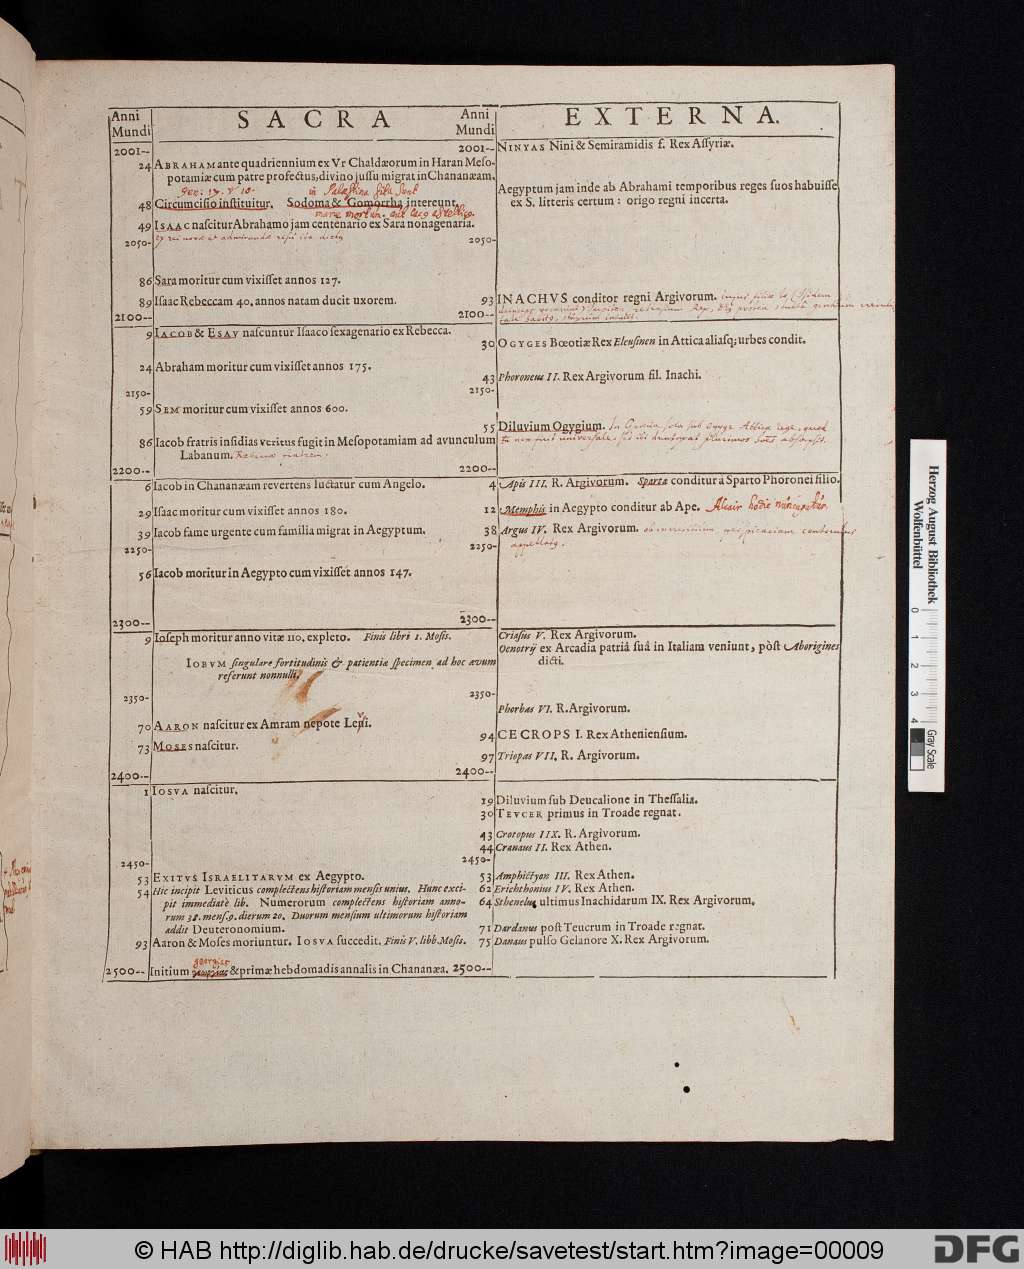 Anni Mundi
SACRA
2001--
24 ABRAHAM ante quadriennium ex Vr Chaldæorum in Haran Meso-
potamiæ cum patre profectus, divino jussu migrat in Chananæam.
Gen: 17. v 10.
in Palæstina sita sunt
48 Circumcisio instituitur. Sodoma & Gomorrha intereunt.
mare mortuum
49 ISAAC nascitur Abrahamo jam centenario ex Sara nonagenaria.
2050-
86 Sara moritur cum vixisset annos 127.
89 Isaac Rebeccam 40. annos natam ducit uxorem.
2100--
9 IACOB & ESAV nascuntur Isaaco sexagenario ex Rebecca.
24 Abraham moritur cum vixisset annos 175.
2150-
59 SEM moritur cum vixisset annos 600.
86 Iacob fratris insidias veritus fugit in Mesopotamiam ad avunculum
Labanum.
2200--
6 Iacob in Chananæam revertens luctatur cum Angelo.
29 Isaac moritur cum vixisset annos 180.
39 Iacob fame urgente cum familia migrat in Aegyptum.
2250-
56 Iacob moritur in Aegypto cum vixisset annos 147.
2300--
9 Ioseph moritur anno vitæ 110. expleto. Finis libri 1. Mosis.
IOBVM singulare fortitudinis & patientiæ specimen ad hoc ævum
referunt nonnulli.
2350-
70 AARON nascitur ex Amram nepote Levi.
73 MOSES nascitur.
2400--
1 IOSVA nascitur.
2450-
53 EXITVS ISRAELITARVM ex Aegypto.
54 Hic incipit Leviticus complectens historiam mensis unius. Hunc exci-
pit immediatè lib. Numerorum complectens historiam anno-
rum 38. mens. 9. dierum 20. Duorum mensium ultimorum historiam
addit Deuteronomium.
93 Aaron & Moses moriuntur. IOSVA succedit. Finis V. libb. Mosis.
georgias
2500-- Initium & primæ hebdomadis annalis in Chananæa.
Anni Mundi
EXTERNA.
2001-- NINYAS Nini & Semiramidis f. Rex Assyriæ.
Aegyptum jam inde ab Abrahami temporibus reges suos habuisse
ex S. litteris certum: origo regni incerta.
2050-
93 INACHVS conditor regni Argivorum.
2100--
30 OGYGES Bœotiæ Rex Eleusinen in Attica aliasq; urbes condit.
43 Phoroneus II. Rex Argivorum fil. Inachi.
2150-
55 Diluvium Ogygium.
2200--
4 Apis III. R. Argivorum. Sparta conditur a Sparto Phoronei filio.
12 Memphis in Aegypto conditur ab Ape. Alcair hodie nuncupatur.
38 Argus IV. Rex Argivorum.
2250-
2300--
Criasus V. Rex Argivorum.
Oenotrij ex Arcadia patriâ suâ in Italiam veniunt, pòst Aborigines
dicti.
2350-
Phorbas VI. R. Argivorum.
94 CECROPS I. Rex Atheniensium.
97 Triopas VII. R. Argivorum.
2400--
19 Diluvium sub Deucalione in Thessalia.
30 TEVCER primus in Troade regnat.
43 Crotopus IIX. R. Argivorum.
44 Cranaus II. Rex Athen.
2450-
53 Amphictyon III. Rex Athen.
62 Erichthonius IV. Rex Athen.
64 Sthenelus ultimus Inachidarum IX. Rex Argivorum.
71 Dardanus post Teucrum in Troade regnat.
75 Danaus pulso Gelanore X. Rex Argivorum.
2500--
Herzog August Bibliothek
Wolfenbüttel
0 1 2 3 4
Gray Scale
© HAB http://diglib.hab.de/drucke/savetest/start.htm?image=00009
DFG